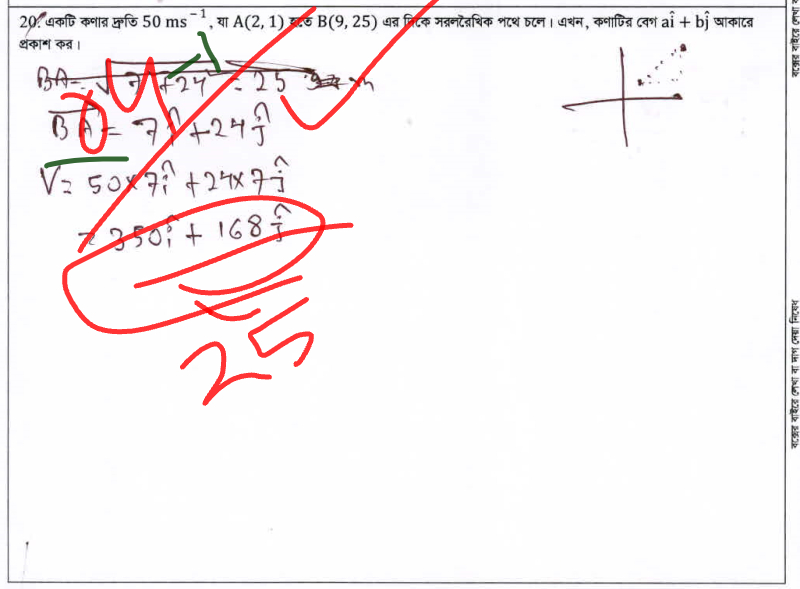 20. একটি কণার দ্রুতি 50 ms⁻¹, যা A(2, 1) হতে B(9, 25) এর দিকে সরলরৈখিক পথে চলে। এখন, কণাটির বেগ aî + bĵ আকারে
প্রকাশ কর।
BA = √7² + 24² = 25 m
BA = 7î + 24ĵ
V = 50×7î + 24×7ĵ
= 350î + 168ĵ
25
বক্সের বাইরে লেখা বা দাগ দেয়া নিষেধ